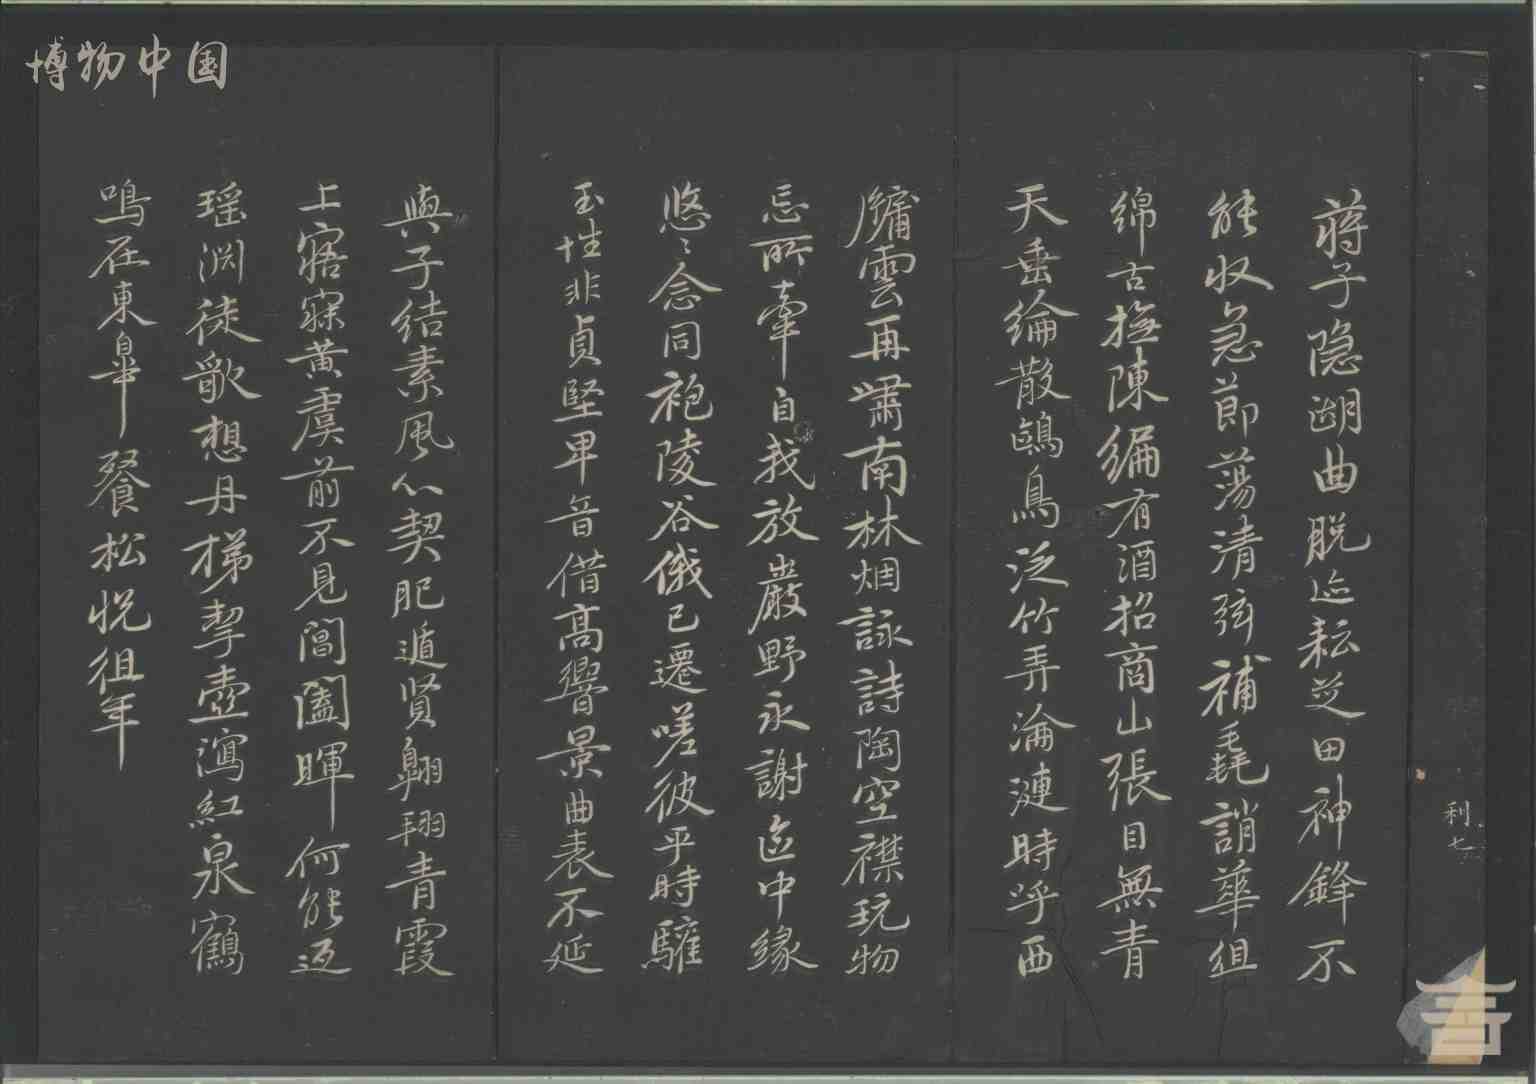 博物中国
蔣子隐湖曲脱迹耘芝田神鋒不
能收急節蕩清弦補毳誚華組
綿古撫陳編有酒招商山張目無青
天垂綸散鷗鳥泛竹弄淪漣時呼西
牖雲再嘯南林烟詠詩陶空襟玩物
忘所牽自我放嚴野永謝区中緣
悠〻念同袍陵谷俄已遷嗟彼平時驩
玉性非貞堅卑音借高響景曲表不延
與子結素風心契肥遁贤翱翔青霞
上寤寐黄虞前不見閶闔暉何能返
瑶渊徒歌想丹梯挈壺瀉紅泉鶴
鳴在東皐餐松悦徂年
利七